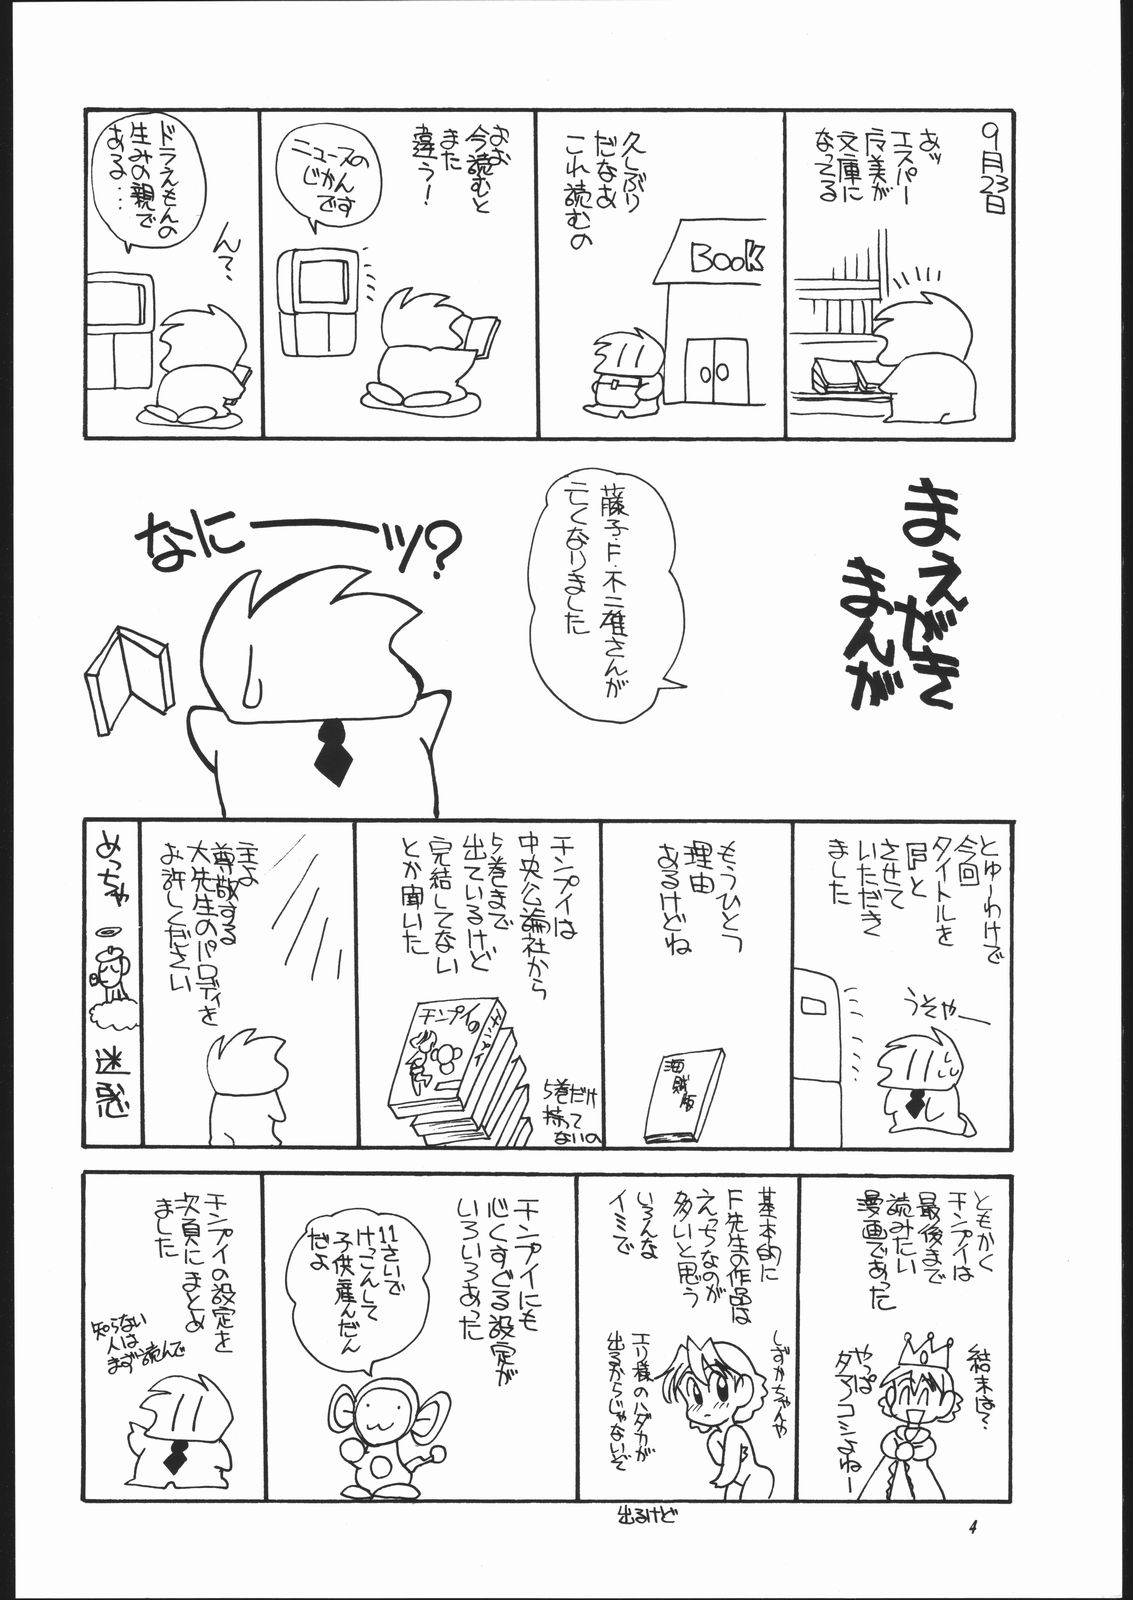 9月23日
あッ
エスパー
魔美が
文庫に
なってる
久しぶり
だなあ
これ読むの
Book
おお
今読むと
また
違う!
ニュースの
じかん
です
ドラえもんの
生みの親で
ある…
んて?
まえがき
まんが
藤子・F・不二雄さんが
亡くなりました
なにーーッ?
とゅーわけで
今回
タイトルを
『F』と
させて
いただき
ました
うそやー
もうひとつ
理由
あるけどね
海賊版
チンプイは
中央公論社から
5巻まで
出ているけど
完結してない
とか聞いた
チンプイ
チンプイ
5巻だけ
持って
ないの
主よ
尊敬する
大先生のパロディを
お許しください
めっちゃ
迷惑
ともかく
チンプイは
最後まで
読みたい
漫画であった
結末は?
やっぱ
タマノコシよねー
基本的に
F先生の作品は
えっちなのが
多いと思う
いろんな
イミで
しずかちゃんや
エリ様のハダカが
出るからじゃないぞ
出るけど
チンプイにも
心くすぐる設定が
いろいろあった
11さいで
けっこんして
子供産んだん
だよ
チンプイの設定を
次頁にまとめ
ました
知らない
人は
まず読んで
4